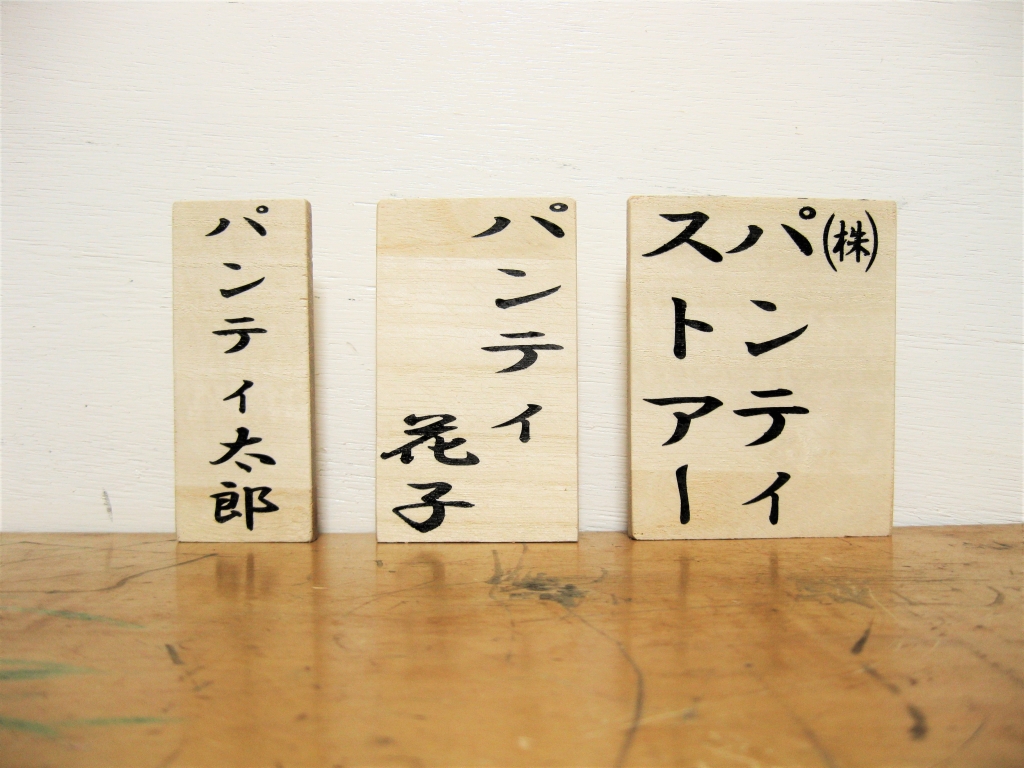 パンティ太郎
パンティ
花子
㈱
パンティ
ストアー